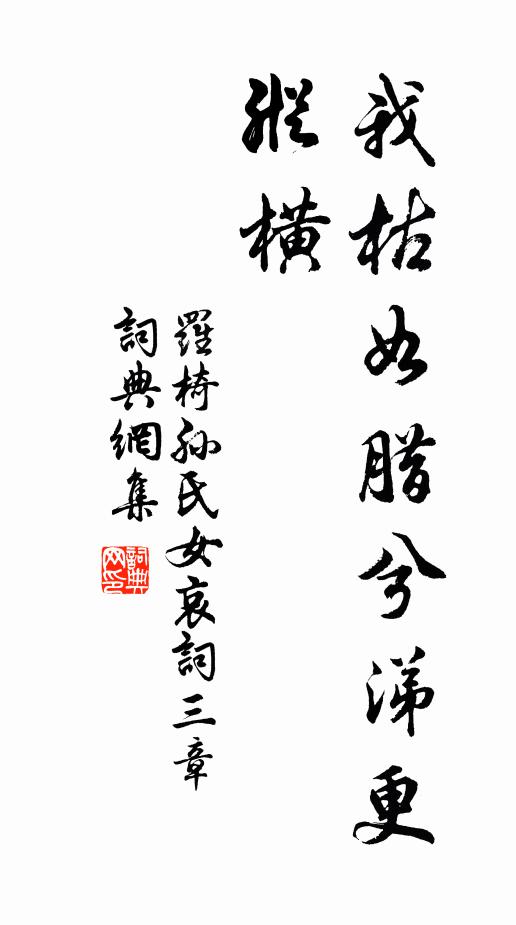 我枯如腊兮涕更
縱橫
羅椅孫氏女哀詞三章
詞典網集
詞典網印